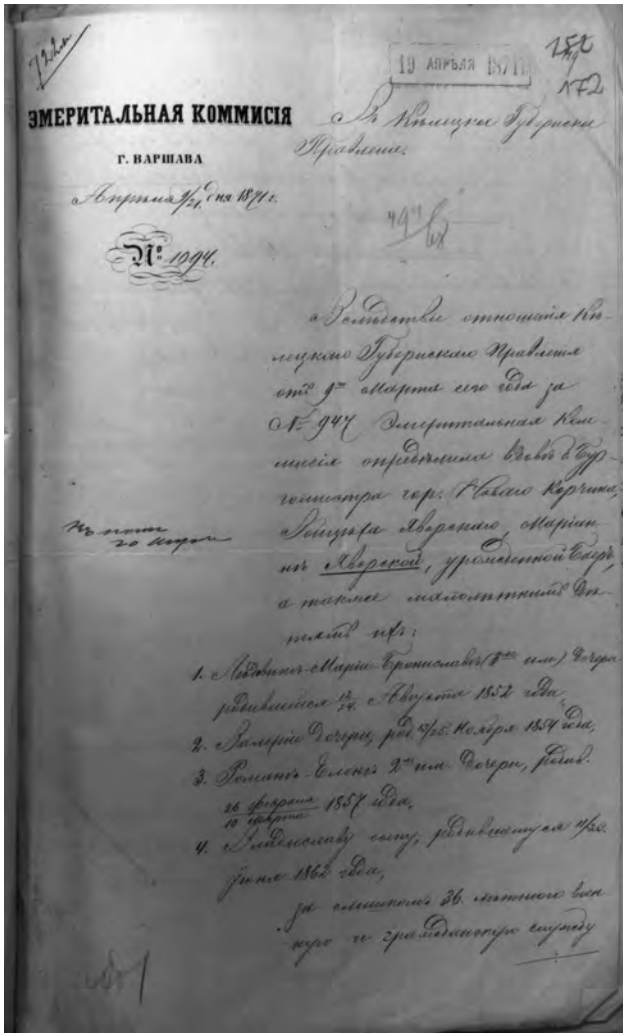 722
19 АПРѢЛЯ 1871
172
ЭМЕРИТАЛЬНАЯ КОММИСІЯ
Г. ВАРШАВА
Апрѣля 9/21 дня 1871 г.
№ 1094.
Въ Кѣлецкое Губернское
Правленіе.
Вслѣдствіе отношенія Кѣ-
лецкаго Губернскаго Правленія
отъ 9го Марта сего года за
№ 947 Эмеритальная Ком-
мисія опредѣлила вдовѣ б. Бур-
гомистра гор. Новаго Корчина,
Войцѣха Яворскаго, Маріан-
нѣ Яворской, урожденной
а также малолѣтнимъ дѣ-
тямъ ихъ:
1. Людовикѣ-Маріи-Брониславѣ (3хъ им.) дочери
родившейся 12/24 Августа 1852 года,
2. Валеріи дочери, род. 13/25 Ноября 1854 года,
3. Романѣ-Еленѣ 2хъ им. дочери, родив.
26 февраля / 10 марта 1857 года,
4. Владиславу сыну, родившемуся
Іюня 1862 года,
за слишкомъ 36. лѣтнюю воен-
ную и гражданскую службу